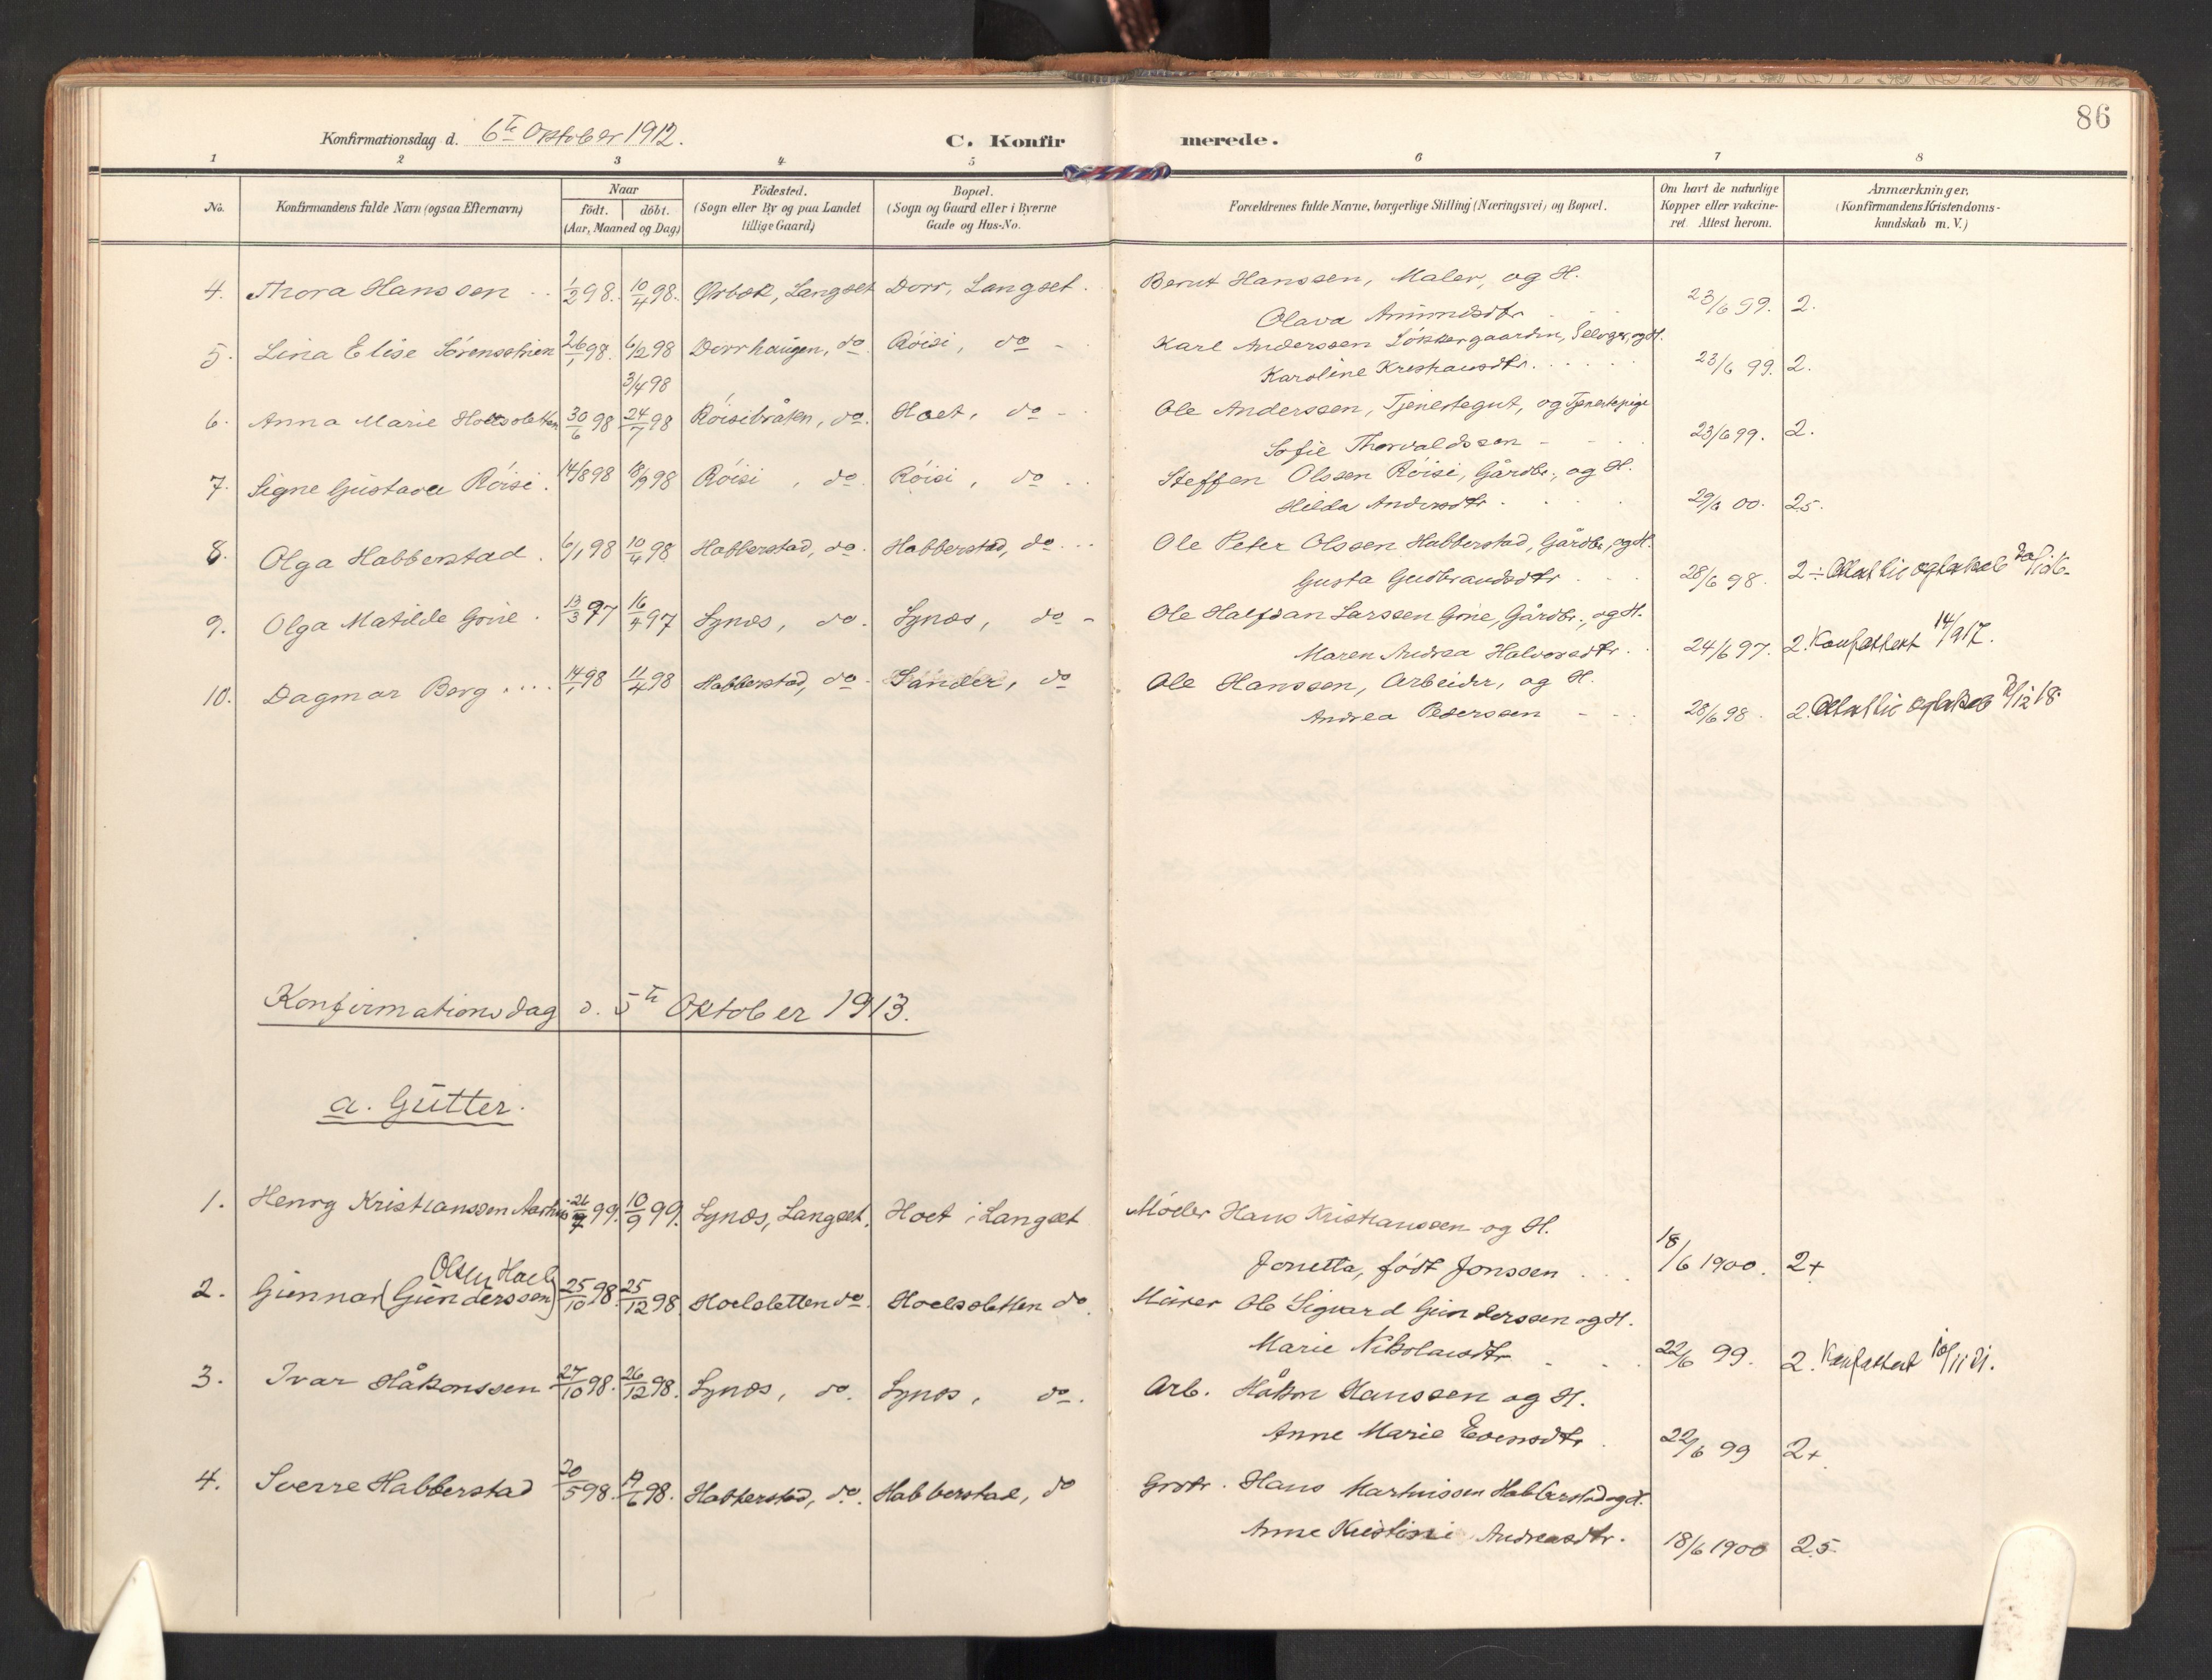 86
Konfirmationsdag d. 6te Oktober 1912.
C. Konfirmerede.
1 2 3 4 5 6 7 8
No.
Konfirmandens fulde Navn (ogsaa Efternavn)
Naar
födt. döbt.
(Aar, Maaned og Dag)
Födested.
(Sogn eller By og paa Landet
tillige Gaard)
Bopæl.
(Sogn og Gaard eller i Byerne
Gade og Hus-No.
Forældrenes fulde Navne, borgerlige Stilling (Næringsvei) og Bopæl.
Om havt de naturlige
Kopper eller vakcine-
ret. Attest herom.
Anmærkninger.
(Konfirmandens Kristendoms-
kundskab m. V.)
4. Thora Hanssen 1/2 98. 10/4 98. Ørbæk, Langset Dorr, Langset. Bernt Hanssen, Maler, og H.
Olava Amundsdtr 23/6 99. 2.
5. Lina Elise Sörenssen 26/1 98. 6/2 98 Dorrhaugen, do. Röisi, do Karl Anderssen Lökkergaarden, Selveier, og H.
3/4 98 Karoline Kristiansdtr. 23/6 99. 2.
6. Anna Marie Hoelssletten 30/6 98 24/7 98 Röisibråten, do. Hoet, do Ole Anderssen, Tjenestegut, og Tjenestepige
Sofie Thorvaldssen 23/6 99. 2.
7. Signe Gustava Röisi. 14/8 98 18/9 98 Röisi, do Röisi, do Steffen Olssen Röisi, Gårdbr., og H.
Hilda Andersdtr. 29/6 00. 2.5.
8. Olga Habberstad. 6/1 98 10/4 98 Habberstad, do. Habberstad, do Ole Peter Olssen Habberstad, Gårdbr., og H.
Gusta Gudbrandsdtr 28/6 98. 2÷
9. Olga Matilde Grine. 13/3 97 16/4 97 Synes, do. Synes, do Ole Halfdan Larssen Grine, Gårdbr., og H.
Maren Andrea Halvorsdtr. 24/6 97. 2. Konfattest 14/9 17.
10. Dagmar Berg 14/1 98 11/4 98 Habberstad, do Sander, do Ole Hanssen, Arbeider, og H.
Andrea Pederssen 28/6 98. 2.
Konfirmationsdag d. 5te Oktober 1913.
a. Gutter.
1. Henry Kristianssen 99. 10/9 99. Synes, Langset. Hoet i Langset Möller Hans Kristianssen og H.
Jonetta, födt Jonssen 18/6 1900. 2+
Olsen Hoel
2. Gunnar (Gunderssen) 25/10 98. 25/12 98. Hoelsletten do. Hoelssletten do. Murer Ole Sigvard Gunderssen og H.
Marie Nikolaisdtr 22/6 99. 2. Konfattest 10/11 21.
3. Ivar Håkonssen 27/10 98. 26/12 98. Synes, do. Synes, do. Arb. Håkon Hanssen og H.
Anne Marie Evensdtr 22/6 99 2+
4. Sverre Habberstad 20/5 98. 98. Habberstad, do. Habberstad, do Grdbr. Hans Martinssen Habberstad og H.
Anne Kristine Andreasdtr. 18/6 1900 2.5